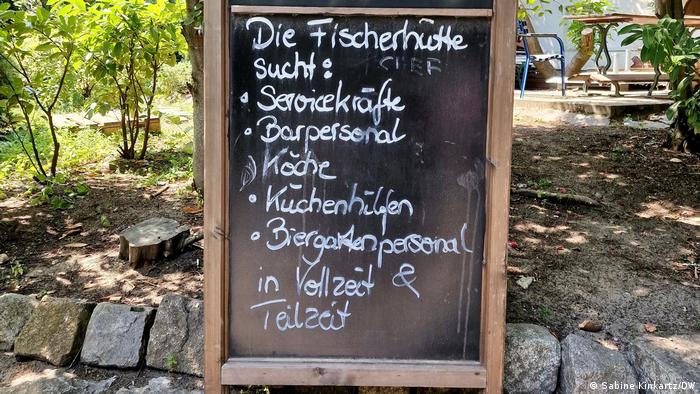 Die Fischerhütte
sucht: CHEF
• Servicekräfte
• Barpersonal
Köche
• Küchenhilfen
• Biergartenpersonal
in Vollzeit &
Teilzeit
© Sabine Kinkartz/DW